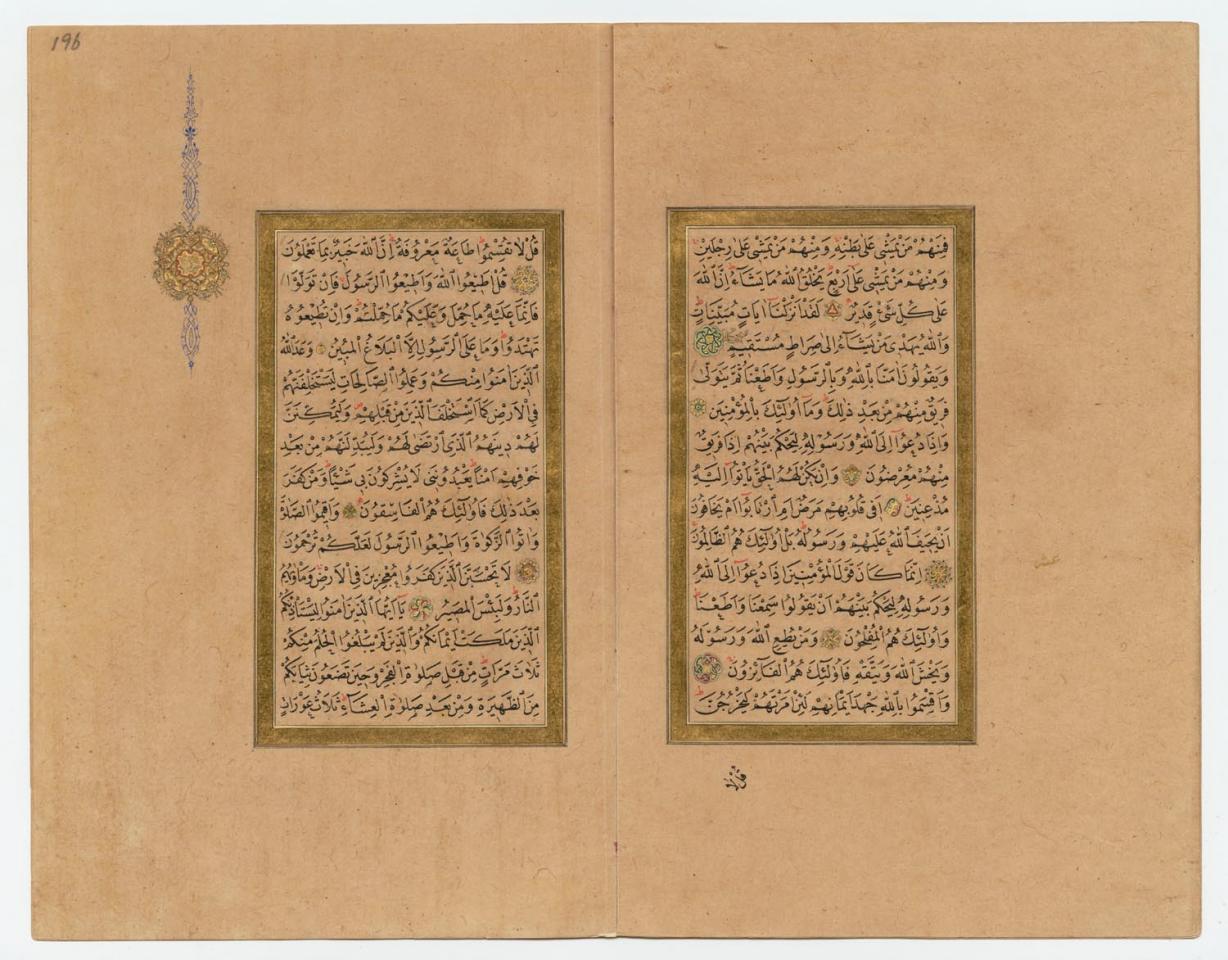 فَمِنْهُمْ مَنْ يَمْشِي عَلَى بَطْنِهِ وَمِنْهُمْ مَنْ يَمْشِي عَلَى رِجْلَيْنِ
وَمِنْهُمْ مَنْ يَمْشِي عَلَى أَرْبَعٍ يَخْلُقُ اللهُ مَا يَشَاءُ إِنَّ اللهَ
عَلَى كُلِّ شَيْءٍ قَدِيرٌ لَقَدْ أَنْزَلْنَا آيَاتٍ مُبَيِّنَاتٍ
وَاللهُ يَهْدِي مَنْ يَشَاءُ إِلَى صِرَاطٍ مُسْتَقِيمٍ
وَيَقُولُونَ آمَنَّا بِاللهِ وَبِالرَّسُولِ وَأَطَعْنَا ثُمَّ يَتَوَلَّى
فَرِيقٌ مِنْهُمْ مِنْ بَعْدِ ذَلِكَ وَمَا أُولَئِكَ بِالْمُؤْمِنِينَ
وَإِذَا دُعُوا إِلَى اللهِ وَرَسُولِهِ لِيَحْكُمَ بَيْنَهُمْ إِذَا فَرِيقٌ
مِنْهُمْ مُعْرِضُونَ وَإِنْ يَكُنْ لَهُمُ الْحَقُّ يَأْتُوا إِلَيْهِ
مُذْعِنِينَ أَفِي قُلُوبِهِمْ مَرَضٌ أَمِ ارْتَابُوا أَمْ يَخَافُونَ
أَنْ يَحِيفَ اللهُ عَلَيْهِمْ وَرَسُولُهُ بَلْ أُولَئِكَ هُمُ الظَّالِمُونَ
إِنَّمَا كَانَ قَوْلَ الْمُؤْمِنِينَ إِذَا دُعُوا إِلَى اللهِ
وَرَسُولِهِ لِيَحْكُمَ بَيْنَهُمْ أَنْ يَقُولُوا سَمِعْنَا وَأَطَعْنَا
وَأُولَئِكَ هُمُ الْمُفْلِحُونَ وَمَنْ يُطِعِ اللهَ وَرَسُولَهُ
وَيَخْشَ اللهَ وَيَتَّقْهِ فَأُولَئِكَ هُمُ الْفَائِزُونَ
وَأَقْسَمُوا بِاللهِ جَهْدَ أَيْمَانِهِمْ لَئِنْ أَمَرْتَهُمْ لَيَخْرُجُنَّ
قُلْ لَا
196
قُلْ لَا تُقْسِمُوا طَاعَةٌ مَعْرُوفَةٌ إِنَّ اللهَ خَبِيرٌ بِمَا تَعْمَلُونَ
قُلْ أَطِيعُوا اللهَ وَأَطِيعُوا الرَّسُولَ فَإِنْ تَوَلَّوْا
فَإِنَّمَا عَلَيْهِ مَا حُمِّلَ وَعَلَيْكُمْ مَا حُمِّلْتُمْ وَإِنْ تُطِيعُوهُ
تَهْتَدُوا وَمَا عَلَى الرَّسُولِ إِلَّا الْبَلَاغُ الْمُبِينُ وَعَدَ اللهُ
الَّذِينَ آمَنُوا مِنْكُمْ وَعَمِلُوا الصَّالِحَاتِ لَيَسْتَخْلِفَنَّهُمْ
فِي الْأَرْضِ كَمَا اسْتَخْلَفَ الَّذِينَ مِنْ قَبْلِهِمْ وَلَيُمَكِّنَنَّ
لَهُمْ دِينَهُمُ الَّذِي ارْتَضَى لَهُمْ وَلَيُبَدِّلَنَّهُمْ مِنْ بَعْدِ
خَوْفِهِمْ أَمْنًا يَعْبُدُونَنِي لَا يُشْرِكُونَ بِي شَيْئًا وَمَنْ كَفَرَ
بَعْدَ ذَلِكَ فَأُولَئِكَ هُمُ الْفَاسِقُونَ وَأَقِيمُوا الصَّلٰوةَ
وَآتُوا الزَّكٰوةَ وَأَطِيعُوا الرَّسُولَ لَعَلَّكُمْ تُرْحَمُونَ
لَا تَحْسَبَنَّ الَّذِينَ كَفَرُوا مُعْجِزِينَ فِي الْأَرْضِ وَمَأْوٰيهُمُ
النَّارُ وَلَبِئْسَ الْمَصِيرُ يَا أَيُّهَا الَّذِينَ آمَنُوا لِيَسْتَأْذِنْكُمُ
الَّذِينَ مَلَكَتْ أَيْمَانُكُمْ وَالَّذِينَ لَمْ يَبْلُغُوا الْحُلُمَ مِنْكُمْ
ثَلَاثَ مَرَّاتٍ مِنْ قَبْلِ صَلٰوةِ الْفَجْرِ وَحِينَ تَضَعُونَ ثِيَابَكُمْ
مِنَ الظَّهِيرَةِ وَمِنْ بَعْدِ صَلٰوةِ الْعِشَاءِ ثَلَاثُ عَوْرَاتٍ